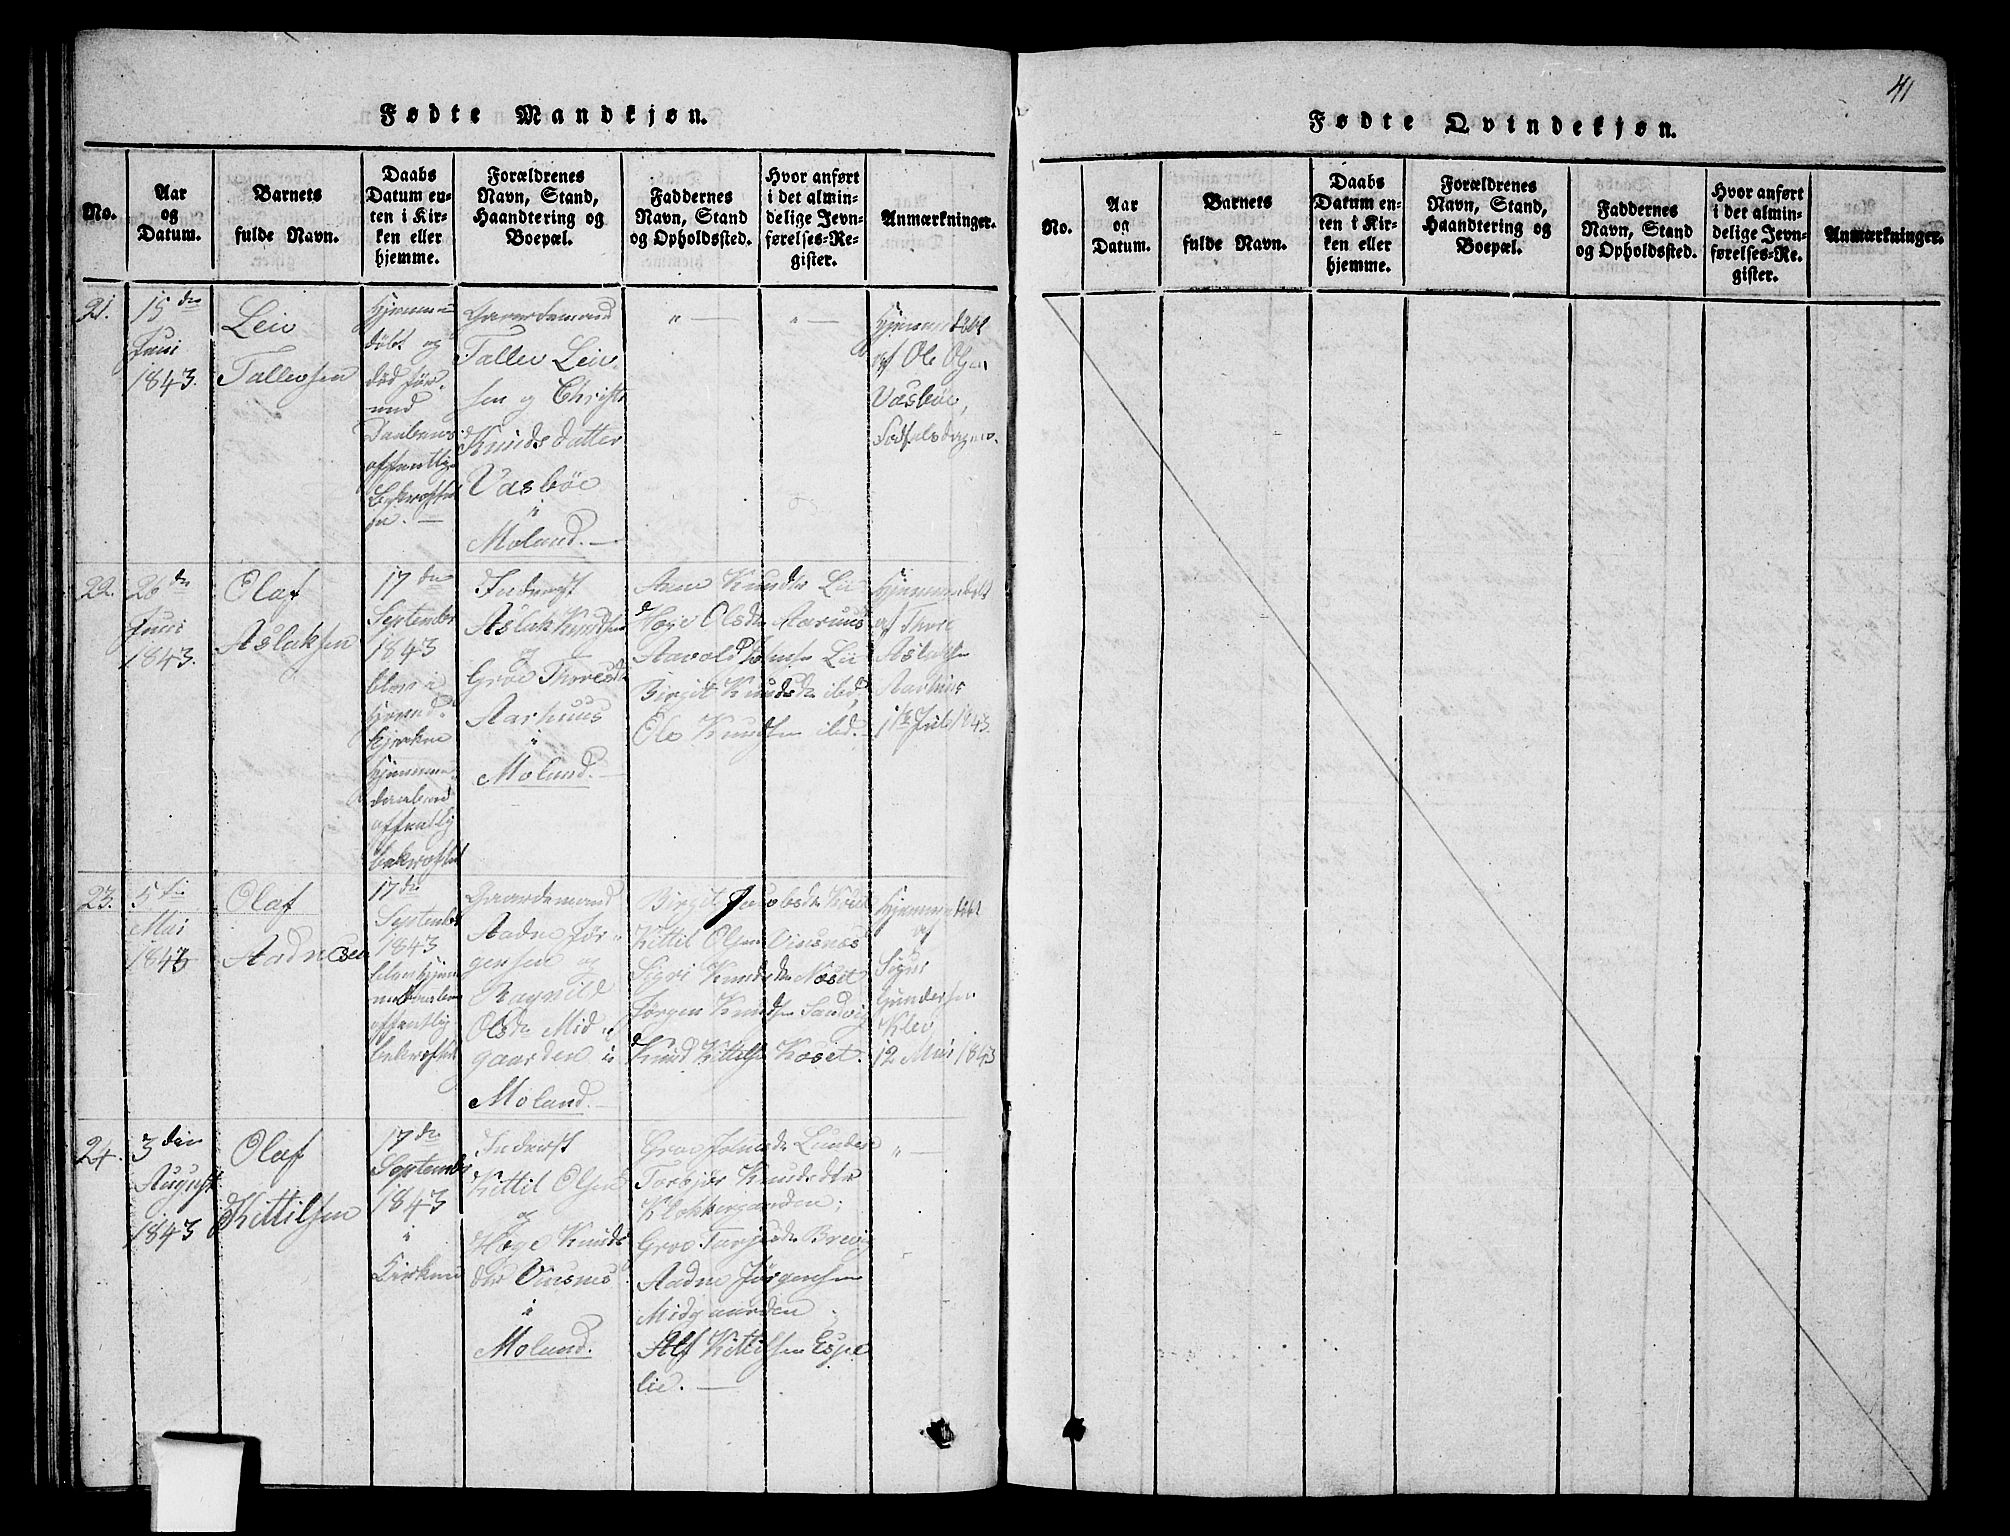 Fødte Mandkjøn.
No.
Aar
og
Datum.
Barnets
fulde Navn.
Daabs
Datum en-
ten i Kir-
ken eller
hjemme.
Forældrenes
Navn, Stand,
Haandtering og
Boepæl.
Faddernes
Navn, Stand
og Opholdssted.
Hvor anført
i det almin-
delige Jevn-
førelses-Re-
gister.
Anmærkninger.
21.
15de
Juni
1843.
Leiv
Tallevsen
Hjemme
døbt og
død før-
end
Daabens
offentlig
Bekræftel
se. —
Gaardemand
Tallev Leiv-
sen og Christi
Knudsdatter
Vasbøe
i
Moland. —
" —
" —
Hjemmedøbt
af Ole Olsen
Vasbøe,
22.
26de
Juni
1843.
Olaf
Aslaksen
17de
September
1843
blev i
Hoved-
kjerken
Hjemme-
daaben
offentlig
bekræftet
Inderst
Aslak Knudsen
og
Groe Thoresdr
Aarhuus
i
Moland. —
Anne Knudsdr Lie
Hæge Olsdr Aarhuus
Aavold Lie
Birgit Knudsdr ibid,
Ole Knudsen ibid. —
Hjemmedøbt
af Thore
Aslaksen
Aarhuus
1ste Juli 1843.
23.
5te
Mai
1843
Olaf
Aadnesen
17de
September
1843
blev hjem
medaaben
offentlig
bekræftet
Gaardemand
Aadne Jør-
gensen og
Ragnild
Olsdr Mid-
gaarden i
Moland. —
Birgit Jacobsdr
Kittil Olsen Vinsnæs
Sigri Knudsdr
Jørgen Knudsen Sandvig
Knud Kittilsen
Hjemmedøbt
af
Sigur
Gundersen
Klev
12 Mai 1843
24.
3die
August
1843
Olaf
Kittilsen
17de
September
1843
i
Kirken
Inderst
Kittil Olsen
og
Hæge Knuds
dtr Vinsnæs
i
Moland.
Groe Lunden
Torbjør Knudsdtr
Klokkergaarden;
Groe Tarjeisdr Brevig
Aadne Jørgensen
Midgaarden;
Alf Kittilsen Espe
lie. —
" —
41
Fødte Qvindekjøn.
No.
Aar
og
Datum.
Barnets
fulde Navn.
Daabs
Datum en-
ten i Kir-
ken eller
hjemme.
Forældrenes
Navn, Stand,
Haandtering og
Boepæl.
Faddernes
Navn, Stand
og Opholdssted.
Hvor anført
i det almin-
delige Jevn-
førelses-Re-
gister.
Anmærkninger.